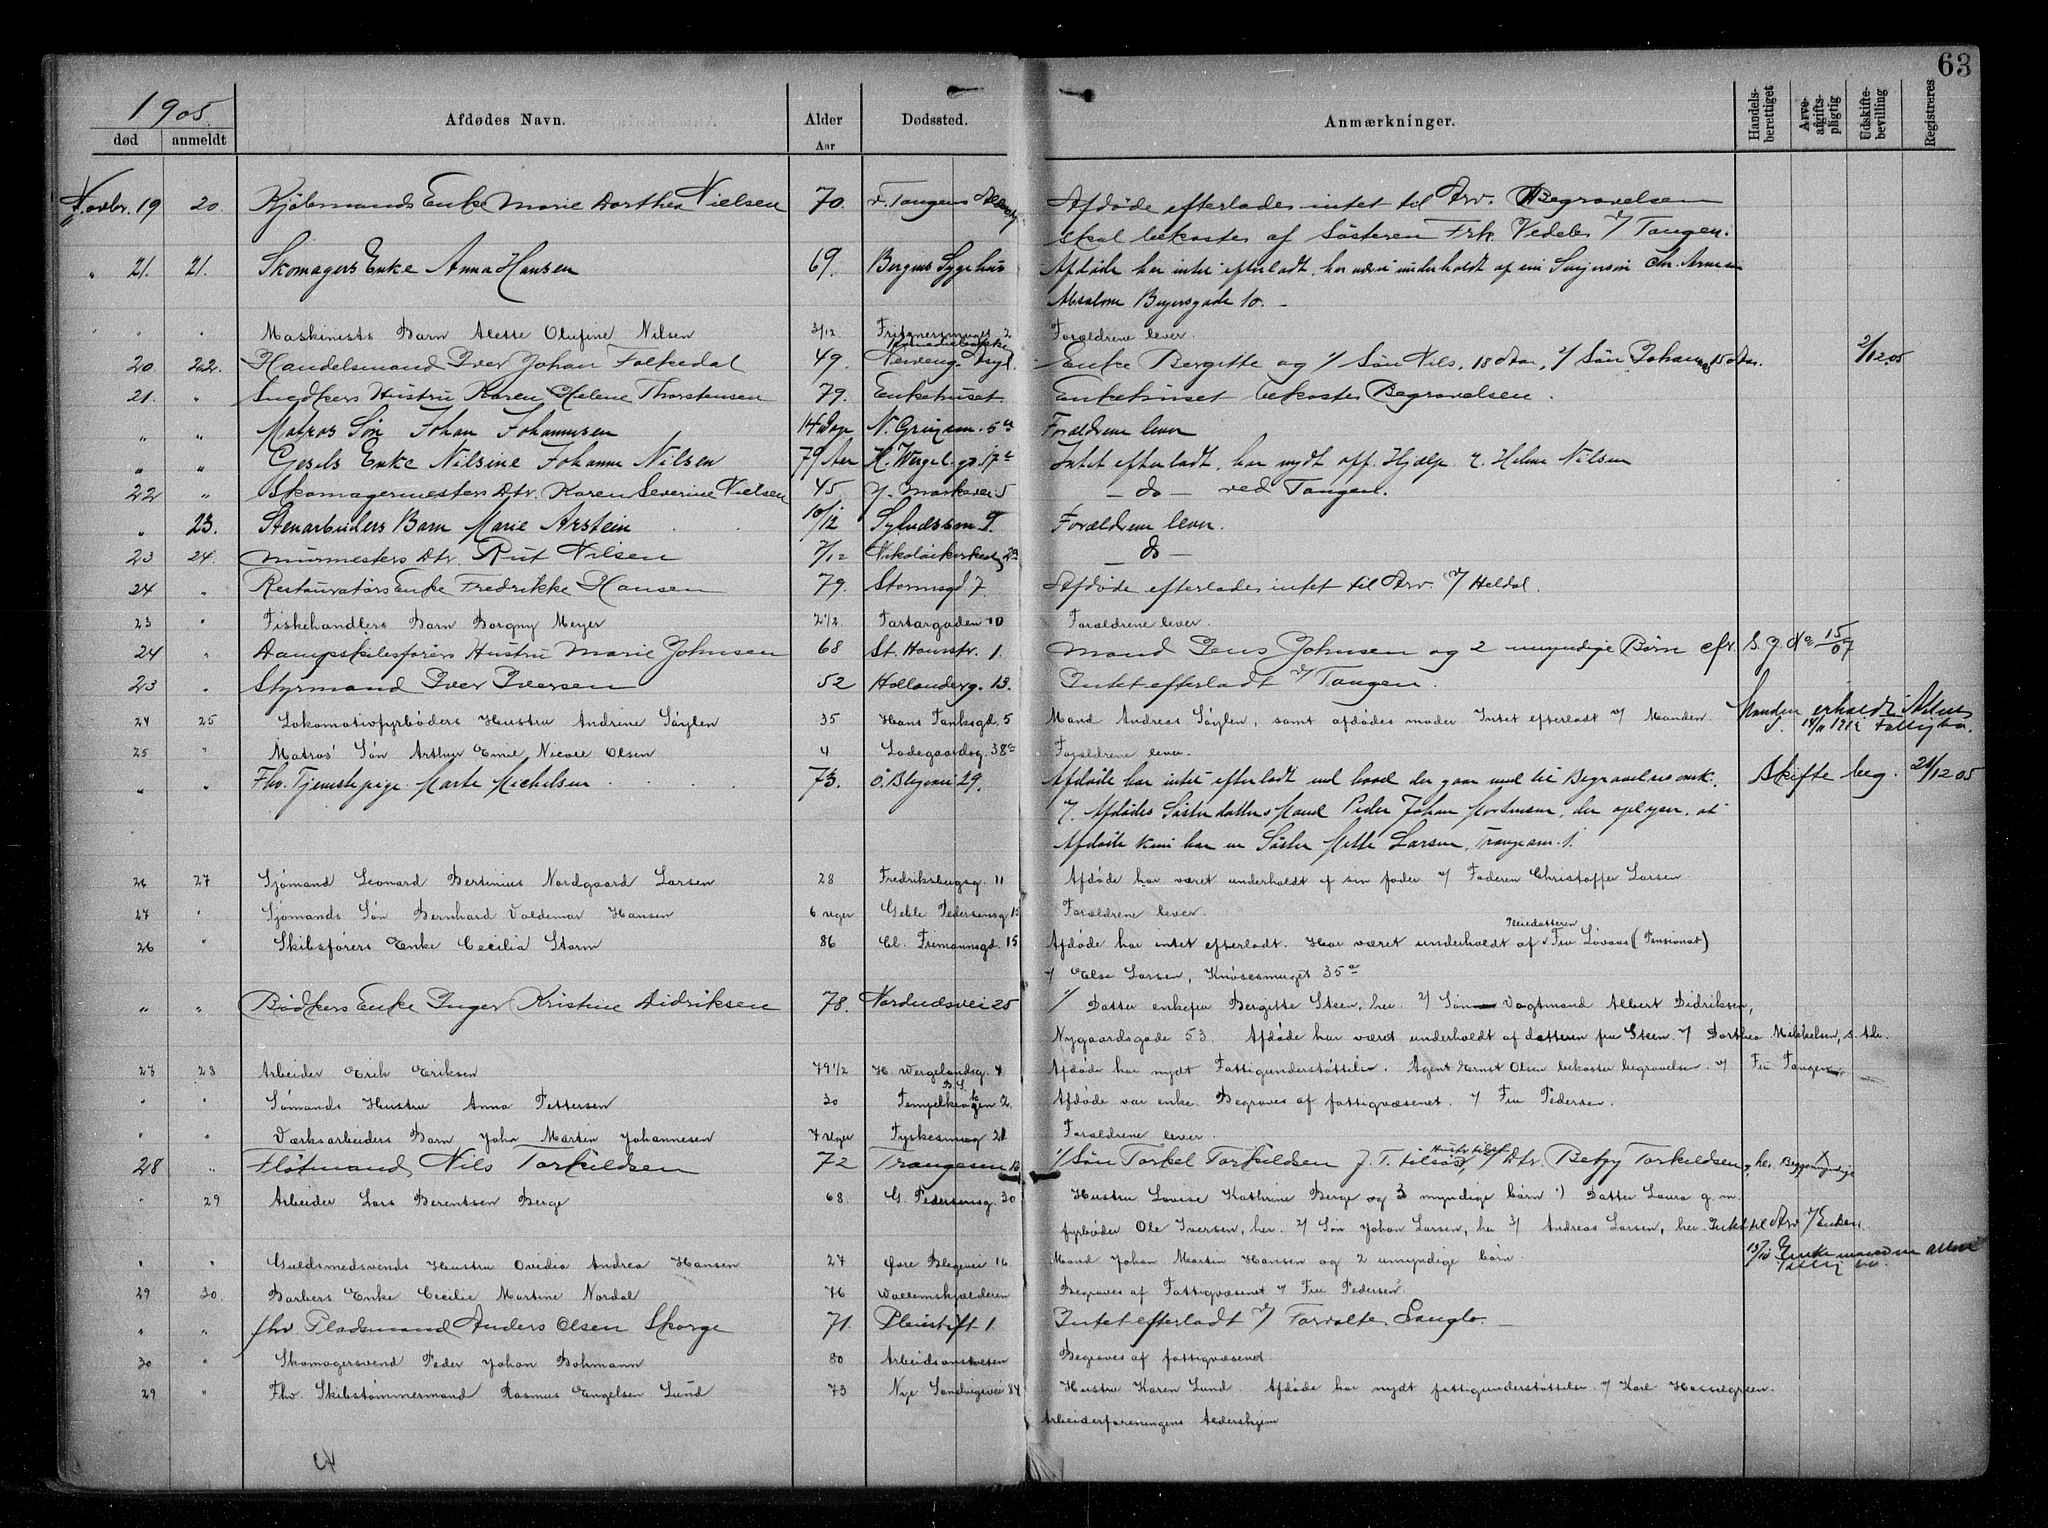 63
1905.
død anmeldt Afdødes Navn. Alder Aar Dødssted. Anmærkninger. Handelsberettiget Arveafgiftspligtig Udskiftebevilling Registreres
Novbr. 19 20. Kjøbmands Enke Marie Dorthea Nielsen 70. Afdøde efterlades intet til Arv. Begravelsen
skal bekostes af Søsteren Frk. Vedeler v/ Tangen.
" 21. 21. Skomagers Enke Anna Hansen 69. Bergens Sygehus Afdøde har intet efterladt, har været underholdt af sin Svigersøn Chr. Arnesen
Absalon Beyersgade 10. –
" " Maskinists Barn Alette Olufine Nilsen 3/12 Fritznersmuget 2 Forældrene lever.
20. 22. Handelsmand Iver Johan Folkedal 49. Neveng. Asyl. Enke Bergitte og 1/ Søn Nils, 18 Aar, 2/ Søn Johannes 15 Aar. 2/12 05
21. " Snedkers Hustru Karen Helene Thorstensen 79. Enkehuset. Enkehuset bekoster Begravelsen.
" " Matros Søn Johan Johannesen 14 Dage 5a Forældrene lever
" " Gesels Enke Nilsine Johanne Nilsen 79 Aar H. Wergel. gd. 17a Intet efterladt, har nydt off. Hjælp v. Helene Nilsen
22 " Skomagermesters Dtr. Karen Severine Nielsen 45. Y. Markevei 5 – do – ved Tangen.
" 23. Stenarbeiders Barn Marie Arstein 10/12 9. Forældrene lever.
23 24. Murmesters Dtr. Rut Nilsen 7/12 Nikolaikirkealm. 2a – do –
24 " Restauratørs Enke Fredrikke Hansen 79. Stormsgd 7 Afdøde efterlades intet til Arv. v/ Heldal.
23 " Fiskehandlers Barn Borgny Meyer 2 1/2 Tartargaden 10 Forældrene lever.
24 " Dampskibsførers Hustru Marie Johnsen 68 St. Hansstr. 1. Mand Jens Johnsen og 2 umyndige Børn cfr. S. J. 15/07
23 " Styrmand Iver Iversen 52 Hollanderg. 13. Intet efterladt v/ Tangen.
24 25 Lokomotivfyrbøders Hustru Andrine Søylen 35 Hans Tanksgd. 5 Mand Andreas Søylen, samt afdødes moder Intet efterladt v/ Manden. Manden erholdt Attest
14/11 1912 Fattig bev.
25 " Matros' Søn Arthur Emil Nicolai Olsen 4 Ladegaardsg. 38a Forældrene lever.
" " Fhv. Tjenestepige Marte Michelsen 73. Ø. Blegevei 29. Afdøde har intet efterladt med hvad der gaar med til Begravelsesomk. Skifte beg. 21/12 05
v. Afdødes Søsterdatters Mand Peder Johan Mortensen, der oplyser, at
Afdøde kun har en Søster Mette Larsen, Trangesm. 1.
26 27 Sjømand Leonard Bertinius Nordgaard Larsen 28 Fredriksbergsg. 11 Afdøde har været underholdt af sin fader v/ Faderen Christoffer Larsen
27 " Sjømands Søn Bernhard Valdemar Hansen 6 uger Geble Pedersensg 15 Forældrene lever.
26 " Skibsførers Enke Cecilia Storm 86 Cl. Frimannsgd. 15 Afdøde har intet efterladt. Har været underholdt af Pleiedatteren Fru Lövaas (Pensionat)
v/ Else Larsen, Knøsesmuget 35a
" " Bødkers Enke Inger Kristine Didriksen 78. Nordnæsvei 25 1/ Datter enkefru Bergitte Steen, her. 2/ Søn Vagtmand Albert Didriksen,
Nygaardsgade 53. Afdøde har været underholdt af datteren fru Steen. v/ Dorthea Mikkelsen, s. stds.
27 28 Arbeider Erik Eriksen 79 1/2 H. Wergelandsg. 4 Afdøde har nydt Fattigunderstøttelse. Agent Ernst Olsen bekoster begravelse. v/ Fru Tangen
" " Sømands Hustru Anna Pettersen 30 B. S. Tempelkrogen 2. Afdøde var enke. Begraves af fattigvæsenet. v/ Fru Pedersen.
" " Værksarbeiders Barn John Martin Johannesen 7 uger Tyskesmug 21 Forældrene lever.
28 " Fløtmand Nils Torkildsen 72 Trangesm 16 1/ Søn Torkel Torkildsen J. T. tilsøs, 2/ Dtr. Betzy Torkildsen, her. Begge myndige
" 29 Arbeider Lars Berentsen Berge 68. G. Pedersensg. 30 Hustru Lovise Kathrine Berge og 3 myndige børn 1) Datter Laura g. m.
fyrbøder Ole Iversen, her. 2/ Søn Johan Larsen, her 3/ Andreas Larsen, her. Intet til Arv v/ Enken.
" " Guldsmedsvends Hustru Ovidia Andrea Hansen 27 Øvre Blegevei 16 Mand Johan Martin Hansen og 2 umyndige børn. 13/10 Enkemanden attest
Fattig bev.
29 30. Barbers Enke Cecilie Martine Nordal 76 Wallemskjælderen Begraves af Fattigvæsenet v/ Fru Pedersen
" " fhv. Pladsmand Anders Olsen Skorge 71. Pleiestift 1. Intet efterladt v/ Forvalter Langlo. –
30 " Skomagersvend Peder Johan Bohmann 80 Arbeidsanstalten Begraves af fattigvæsenet.
29 " Fhv. Skibstømmermand Rasmus Engelsen Lund 73 Nye Sandvigsvei 84 Hustru Karen Lund. Afdøde har nydt fattigunderstøttelse v/ Karl Hasselgreen.
Arbeiderforeningens Aldershjem